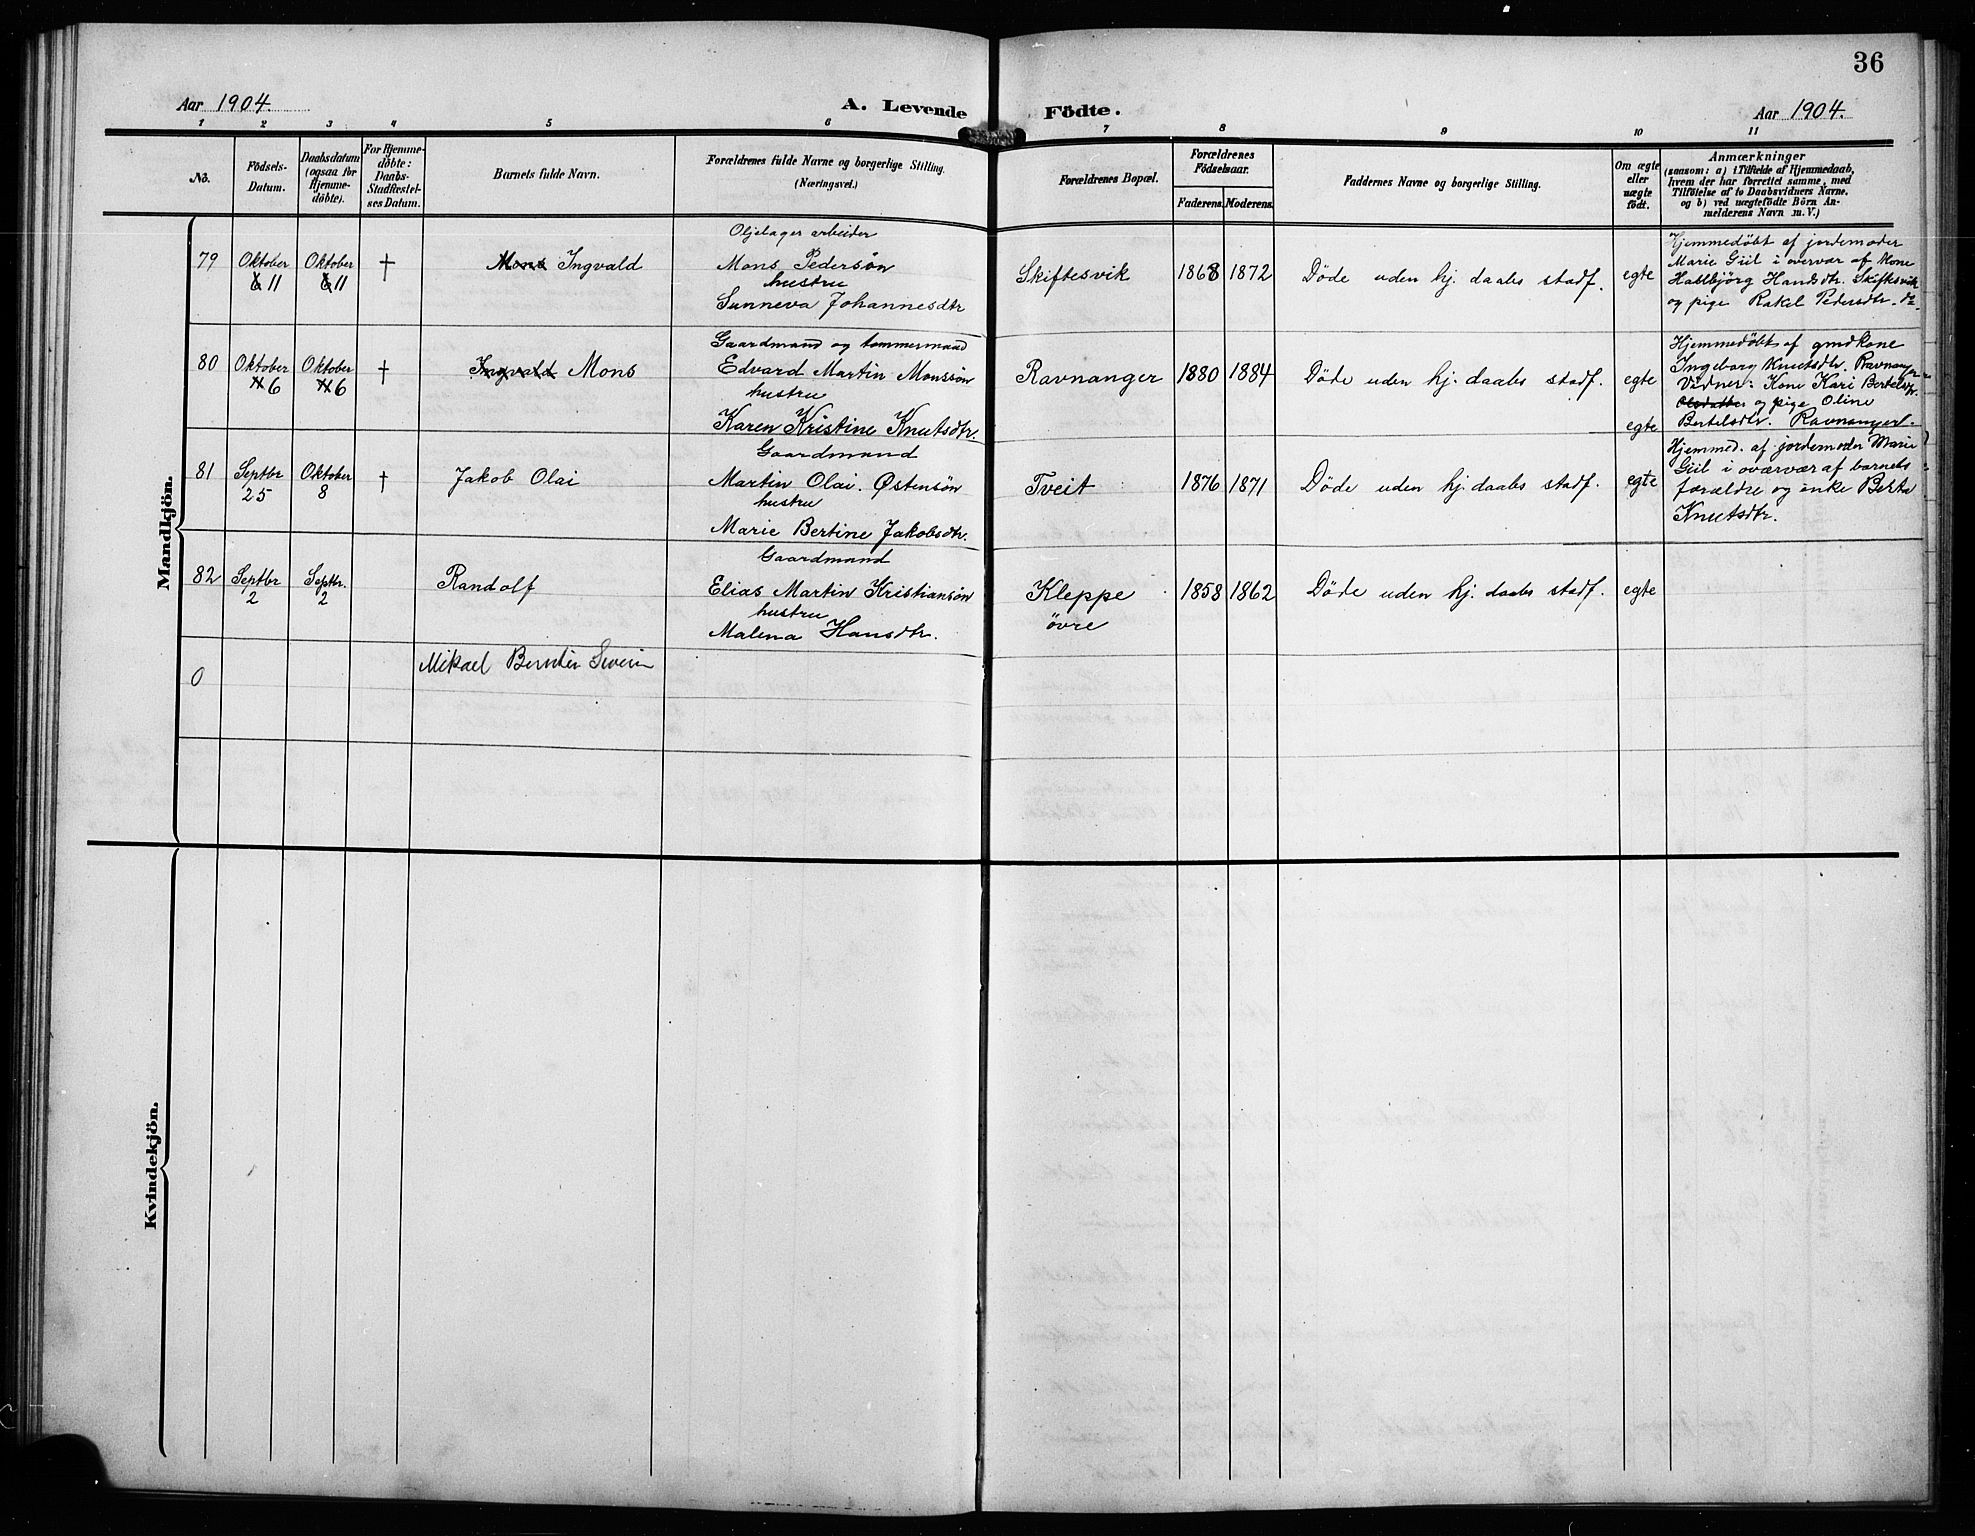 36
Aar 1904.
A. Levende Födte.
Aar 1904.
1 2 3 4 5 6 7 8 9 10 11
No.
Födsels-
Datum.
Daabsdatum
(ogsaa for
Hjemme-
döbte).
For Hjemme-
döbte:
Daabs-
Stadfæstel-
ses Datum.
Barnets fulde Navn.
Forældrenes fulde Navne og borgerlige Stilling.
(Næringsvei.)
Forældrenes Bopæl.
Forældrenes
Födselsaar.
Faderens. Moderens.
Faddernes Navne og borgerlige Stilling.
Om ægte
eller
uægte
födt.
Anmærkninger
(saasom: a) i Tilfælde af Hjemmedaab,
hvem der har forrettet samme, med
Tilföielse af to Daabsvidners Navne.
og b) ved uægtefödte Börn An-
melderens Navn m. V.)
Mandkjön.
79
Oktober
6 11
Oktober
6 11
†
Mons Ingvald
Oljelager arbeider
Mons Pedersøn
hustru
Sunneva Johannesdtr
Skiftesvik
1868 1872
Døde uden hj. daabs stadf.
egte
Hjemmedøbt af jordemoder
Marie Giil i overvær af Kone
Hallbjörg Hansdtr. Skiftesvik
og pige Rakel Pedersdtr. do.
80
Oktober
11 6
Oktober
11 6
†
Ingvald Mons
Gaardmand og tømmermand
Edvard Martin Monssøn
hustru
Karen Kristine Knutsdtr.
Ravnanger
1880 1884
Døde uden hj. daabs stadf.
egte
egte
Hjemmedøbt af gmdkone
Ingeborg Knutsdtr. Ravnanger
Vidner: Kone Kari Bertelsdtr.
Olsdatter og pige Oline
Bertelsdtr. Ravnanger.
81
Septbr
25
Oktober
8
†
Jakob Olai
Gaardmand
Martin Olai Østensøn
hustru
Marie Bertine Jakobsdtr.
Tveit
1876 1871
Døde uden hj. daabs stadf.
egte
Hjemmed. af jordemoder Marie
Giil i overvær af barnets
forældre og enke Berta
Knutsdtr.
82
Septbr
2
Septbr.
2
Randolf
Gaardmand
Elias Martin Kristiansøn
hustru
Malena Hansdtr.
Kleppe
øvre
1858 1862
Døde uden hj. daabs stadf.
egte
0
Mikael Severin
Kvindekjön.